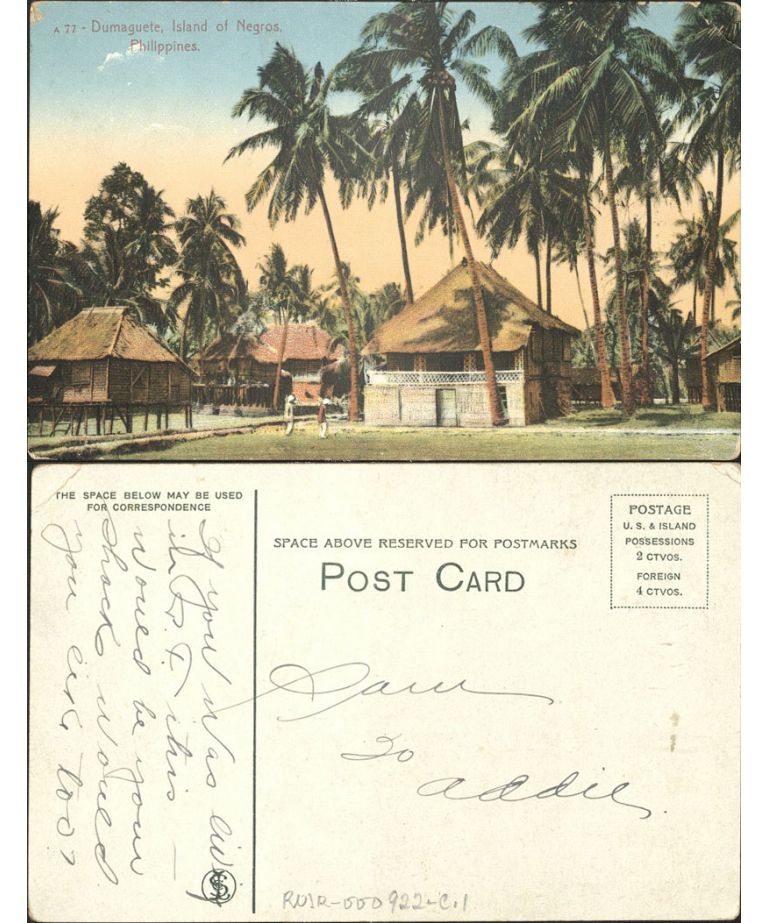 A 77 - Dumaguete, Island of Negros,
Philippines.
THE SPACE BELOW MAY BE USED
FOR CORRESPONDENCE
If you was living
in P. I. this
would be your
shack would
you like to?
SPACE ABOVE RESERVED FOR POSTMARKS
POST CARD
POSTAGE
U. S. & ISLAND
POSSESSIONS
2 CTVOS.
FOREIGN
4 CTVOS.
Sam
to
Addie.
RNIR-000922-C.1